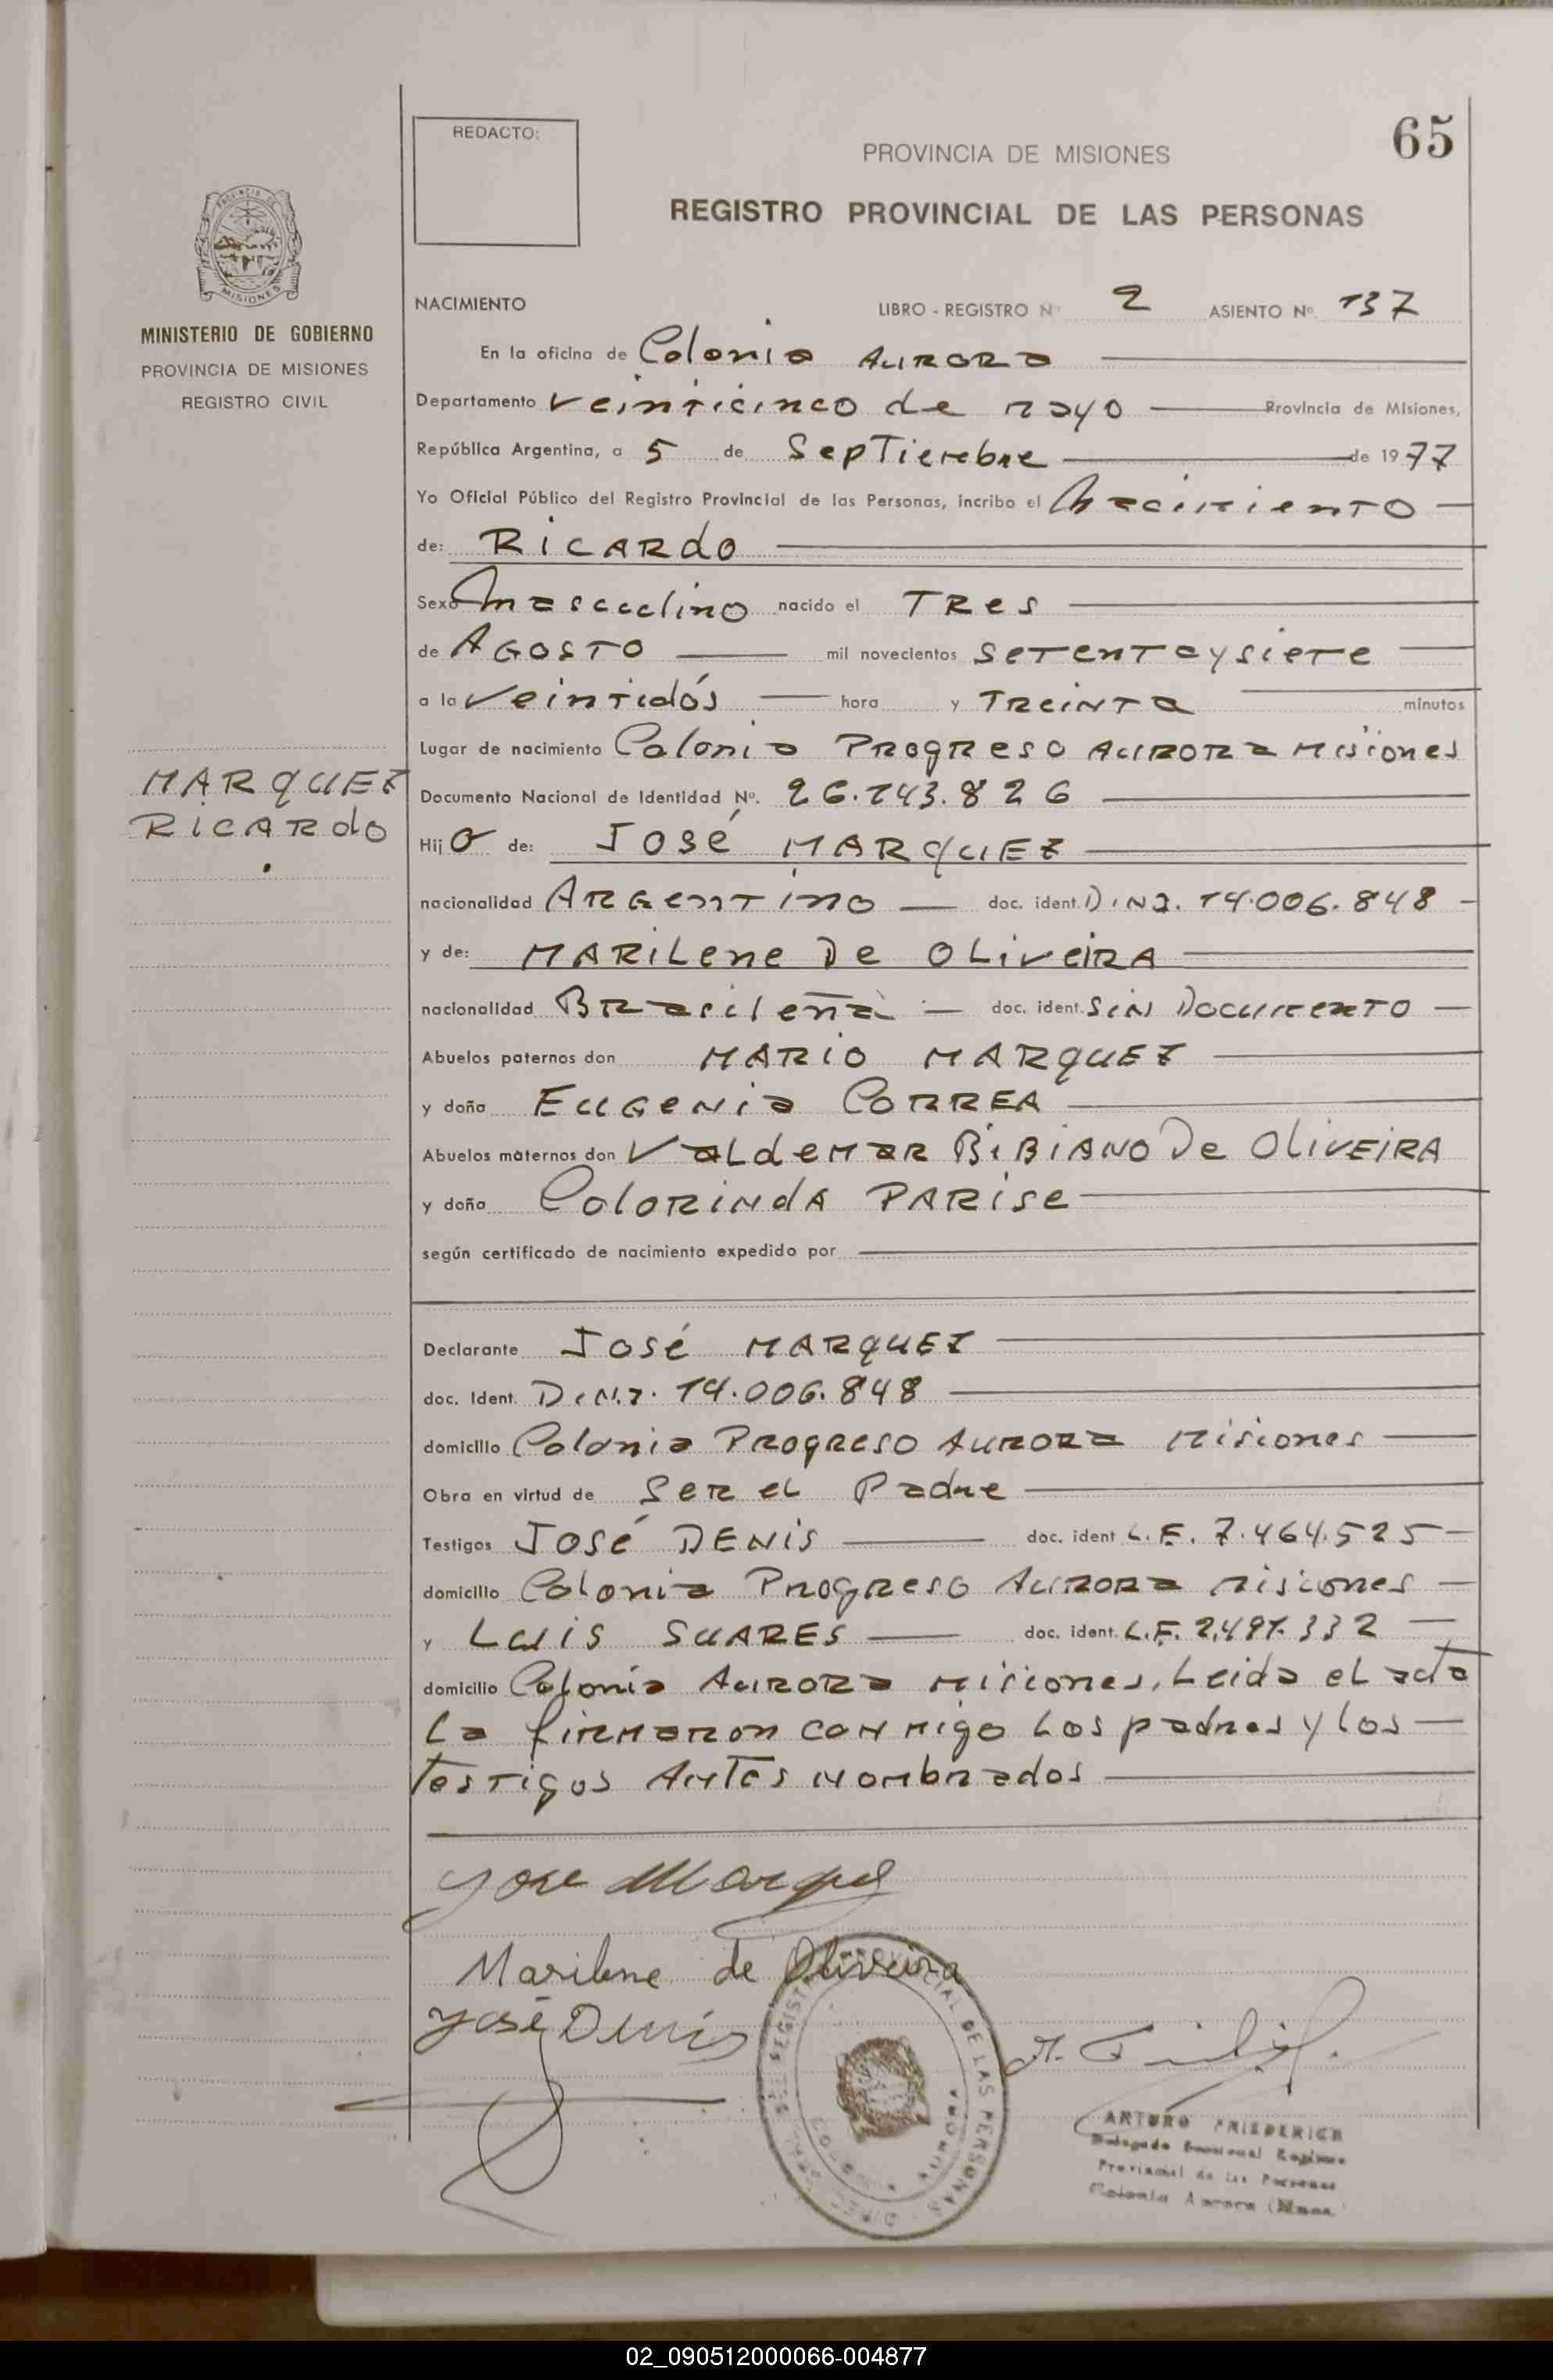 65
REDACTO:
PROVINCIA DE MISIONES
REGISTRO PROVINCIAL DE LAS PERSONAS
MISIONES
MINISTERIO DE GOBIERNO
PROVINCIA DE MISIONES
REGISTRO CIVIL
MARQUEZ
RICARDO
NACIMIENTO LIBRO - REGISTRO Nº 2 ASIENTO Nº 137
En la oficina de Colonia AURORA
Departamento veinticinco de mayo Provincia de Misiones,
República Argentina, a 5 de Septiembre de 1977
Yo Oficial Público del Registro Provincial de las Personas, incribo el Nacimiento
de: RICARDO
Sexo Masculino nacido el TRes
de AGOSTO mil novecientos setentaysiete
a la veintidós hora y TReinta minutos
Lugar de nacimiento Colonia PROgReso AURORA Misiones
Documento Nacional de Identidad Nº. 26.243.826
Hijo de: José MARQUEZ
nacionalidad ARgentino doc. ident. D.N.I. 14.006.848
y de: MARiLene De OLiveiRA
nacionalidad BRasileña doc. ident. SiN Documento
Abuelos paternos don MARIO MARQUEZ
y doña EUGenia CORREA
Abuelos maternos don VaLdeMaR BiBiANO De OLiVEiRA
y doña ColoRiNdA PARise
según certificado de nacimiento expedido por
Declarante José MARQUEZ
doc. Ident. D.N.I. 14.006.848
domicilio Colonia PROgReso AURORA Misiones
Obra en virtud de SeR eL Padre
Testigos José DENiS doc. ident L.E. 7.464.525
domicilio Colonia PROgReso AURORA Misiones
y Luis SUARES doc. ident. L.E. 2.491.332
domicilio Colonia AURORA Misiones. Leida el acta
La firmaron conmigo Los padres y los
testigos Antes nombrados
Jose Marquez
Marilene de Oliveira
José Denis
REGISTRO PROVINCIAL DE LAS PERSONAS
ARTURO FRIEDERICH
Provincial de las Personas
Colonia Aurora (Mnes.
02_090512000066-004877